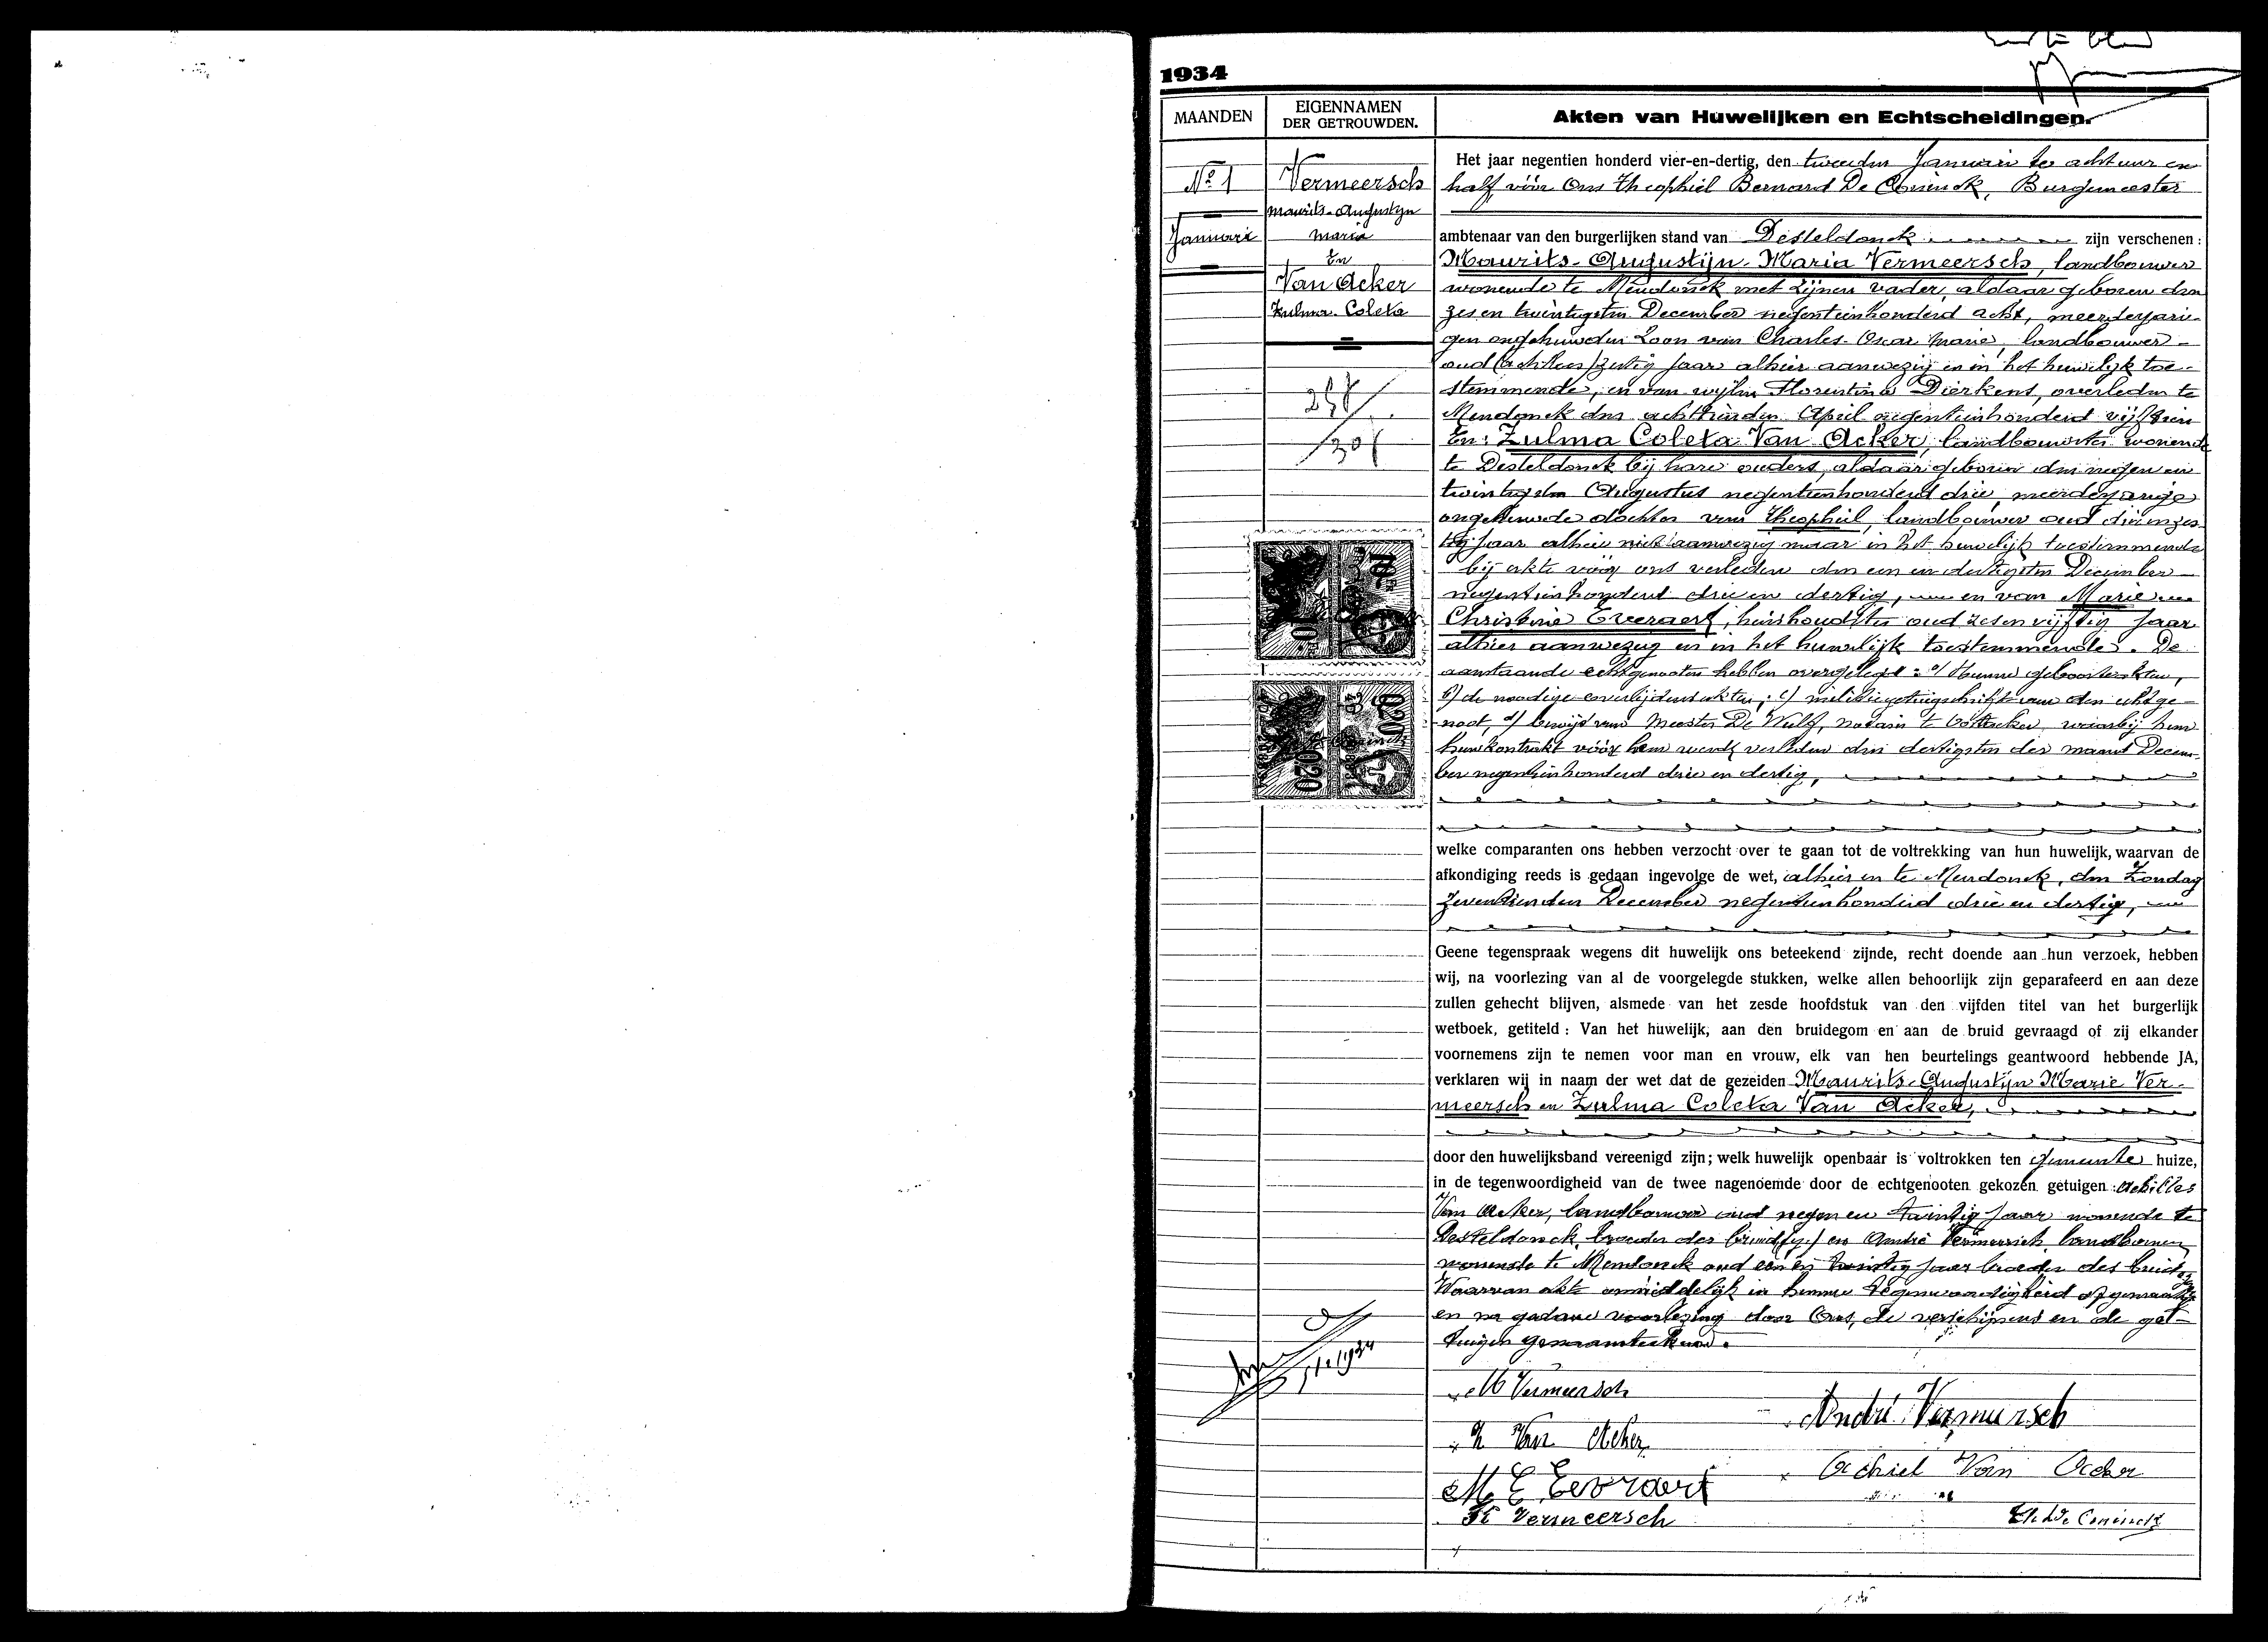 1934
MAANDEN
EIGENNAMEN
DER GETROUWDEN.
Akten van Huwelijken en Echtscheidingen.
Nº 1
Januari
Vermeersch
Maurits-Augustijn
Maria
En
Van Acker
Zulma Coleta
Het jaar negentien honderd vier-en-dertig, den tweeden Januari te acht uur en
half vóór Ons Theophiel Bernard De Coninck, Burgemeester
ambtenaar van den burgerlijken stand van Desteldonck zijn verschenen :
Maurits-Augustijn-Maria Vermeersch, landbouwer
wonende te Mendonck met zijnen vader, aldaar geboren den
zesentwintigsten December negentienhonderd acht, meerderjari-
gen ongehuwden zoon van Charles-Oscar Marie, landbouwer
oud (achtten)zestig jaar alhier aanwezig en in het huwelijk toe-
stemmende, en van wijlen Florentina Dierkens, overleden te
Mendonck den achttienden April negentienhonderd vijftien
En: Zulma Coleta Van Acker, landbouwster wonende
te Desteldonck bij hare ouders, aldaar geboren den negen en
twintigsten Augustus negentienhonderd drie, meerderjarige
ongehuwde dochter van Theophiel, landbouwer oud drieenzes-
tig jaar alhier niet aanwezig maar in het huwelijk toestemmende
bij akte vóór ons verleden den een en dertigsten December
negentienhonderd drie en dertig, en van Marie
Christine Everaert, huishoudster oud zesenvijftig jaar
alhier aanwezig en in het huwelijk toestemmende. De
aanstaande echtgenooten hebben overgelegd : a/ Hunne geboorteakten,
b/ de noodige overlijdensakten; c/ militiegetuigschrift van den echtge-
noot, d/ bewijs van Meester De Wulf, notaris te Oostacker, waarbij hun
huwkontrakt vóór hem werd verleden den dertigsten der maand Decem-
ber negentienhonderd drie en dertig,
welke comparanten ons hebben verzocht over te gaan tot de voltrekking van hun huwelijk, waarvan de
afkondiging reeds is gedaan ingevolge de wet, alhier en te Mendonck, den Zondag
zeventienden December negentienhonderd drie en dertig,
Geene tegenspraak wegens dit huwelijk ons beteekend zijnde, recht doende aan hun verzoek, hebben
wij, na voorlezing van al de voorgelegde stukken, welke allen behoorlijk zijn geparafeerd en aan deze
zullen gehecht blijven, alsmede van het zesde hoofdstuk van den vijfden titel van het burgerlijk
wetboek, getiteld : Van het huwelijk, aan den bruidegom en aan de bruid gevraagd of zij elkander
voornemens zijn te nemen voor man en vrouw, elk van hen beurtelings geantwoord hebbende JA,
verklaren wij in naam der wet dat de gezeiden Maurits-Augustijn Marie Ver-
meersch en Zulma Coleta Van Acker,
door den huwelijksband vereenigd zijn; welk huwelijk openbaar is voltrokken ten gemeente huize,
in de tegenwoordigheid van de twee nagenoemde door de echtgenooten gekozen getuigen : Achilles
Van Acker, landbouwer oud negen en twintig jaar wonende te
Desteldonck, broeder der bruid en André Vermeersch landbouwer
wonende te Mendonck oud een en twintig jaar broeder des bruid
Waarvan akte onmiddelijk in hunne tegenwoordigheid opgemaakt
en na gedane voorlezing door Ons, de verschijnend en de get-
tuigen genaamteekend.
M Vermeersch
André Vermeersch
Z Van Acker
Achiel Van Acker
M C Everaert
Vermeersch
Th. De Coninck